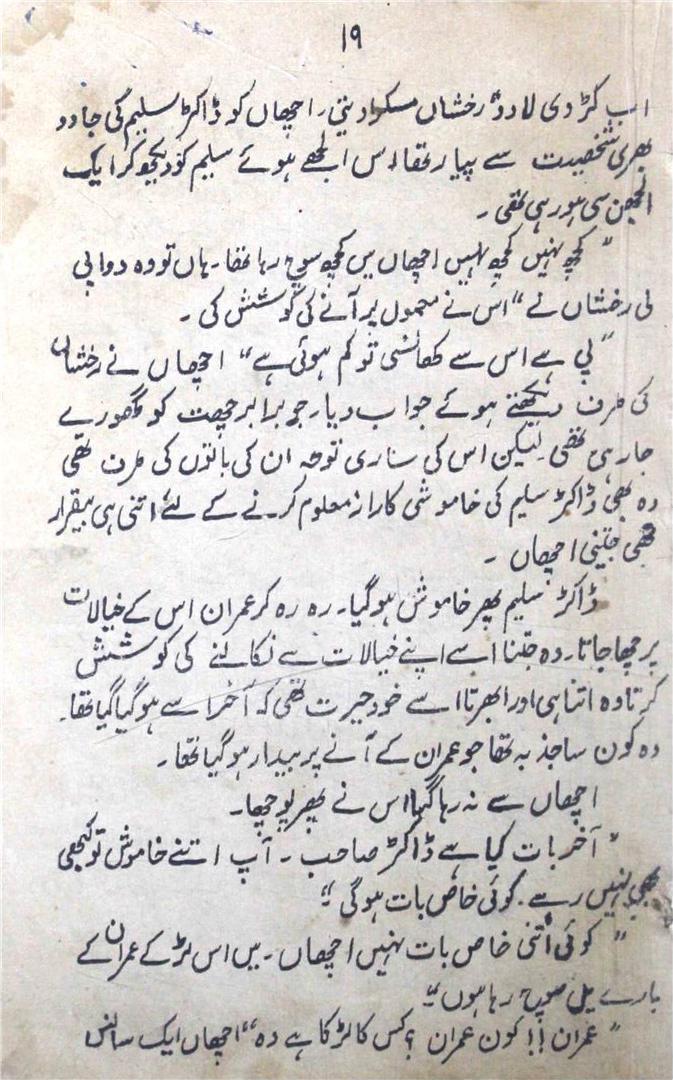 ۱۹
اب کڑوی لا دو" رخشاں مسکرا دیتی۔ اچھاں کو ڈاکڑ سلیم کی جادو
بھری شخصیت سے پیار تھا۔ اس الجھے ہوئے سلیم کو دیکھ کر ایک
الجھن سی ہو رہی تھی۔
"کچھ نہیں کچھ نہیں اچھاں میں کچھ سوچ رہا تھا۔ ہاں تو وہ دوا پی
لی رخشاں نے" اس نے معمول پر آنے کی کوشش کی۔
"پی ہے اس سے کھانسی تو کم ہوئی ہے" اچھاں نے رخشاں
کی طرف دیکھتے ہوئے جواب دیا۔ جو برابر چھت کو گھورے
جا رہی تھی لیکن اس کی ساری توجہ ان کی باتوں کی طرف تھی
وہ بھی ڈاکڑ سلیم کی خاموشی کا راز معلوم کرنے کے لئے اتنی ہی بیقرار
تھی جتنی اچھاں ۔
ڈاکڑ سلیم پھر خاموش ہو گیا۔ رہ رہ کر عمران اس کے خیالات
پر چھا جاتا۔ وہ جتنا اسے اپنے خیالات سے نکالنے کی کوشش
کرتا وہ اتنا ہی اور ابھرتا اسے خود حیرت تھی کہ آخر اسے ہو گیا گیا تھا۔
وہ کون سا جذبہ تھا جو عمران کے آنے پر بیدار ہو گیا تھا۔
اچھاں سے نہ رہا گیا اس نے پھر پوچھا۔
"آخر بات کیا ہے ڈاکڑ صاحب ۔ آپ اتنے خاموش تو کبھی
بھی نہیں رہے۔ کوئی خاص بات ہوگی"
"کوئی اتنی خاص بات نہیں اچھاں۔ میں اس لڑکے عمران کے
بارے میں سوچ رہا ہوں"
"عمران !! کون عمران ؟ کس کا لڑکا ہے وہ" اچھاں ایک سانس